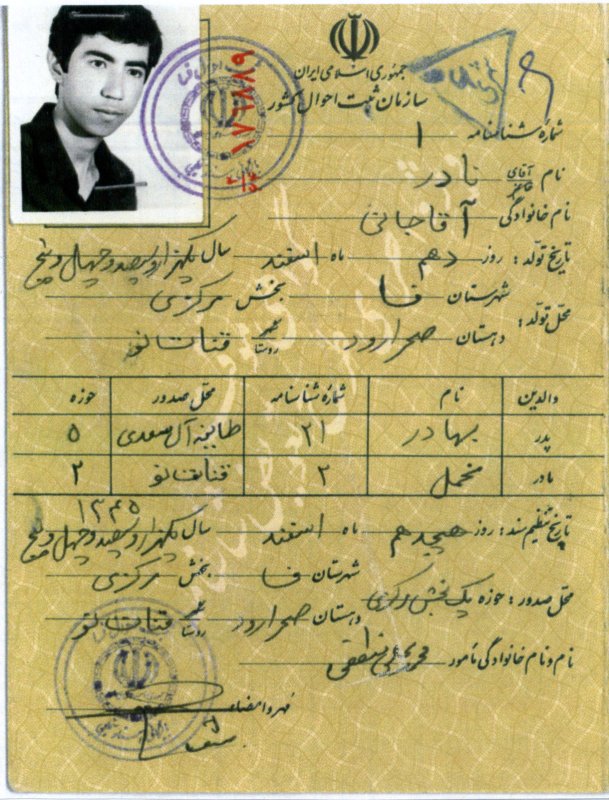 جمهوری اسلامی ایران
سازمان ثبت احوال کشور
شماره شناسنامه ۱
نام آقای خانم نادر
نام خانوادگی آقاجانی
تاریخ تولد: روز دهم ماه اسفند سال یکهزار و سیصد و چهل و پنج
محل تولد: شهرستان فسا بخش مرکزی
دهستان صحرارود شهر روستا قنات نو
والدین نام شماره شناسنامه محل صدور حوزه
پدر بهادر ۲۱ طایفه آل سعدی ۵
مادر مخمل ۳ قنات نو ۲
۱۳۴۵
تاریخ تنظیم سند: روز هیجدهم ماه اسفند سال یکهزار و سیصد و چهل و پنج
محل صدور: حوزه یک بخش مرکزی شهرستان فسا بخش مرکزی
دهستان صحرارود شهر روستا قنات نو
نام و نام خانوادگی مأمور محمد علی منطقی
مهر و امضاء